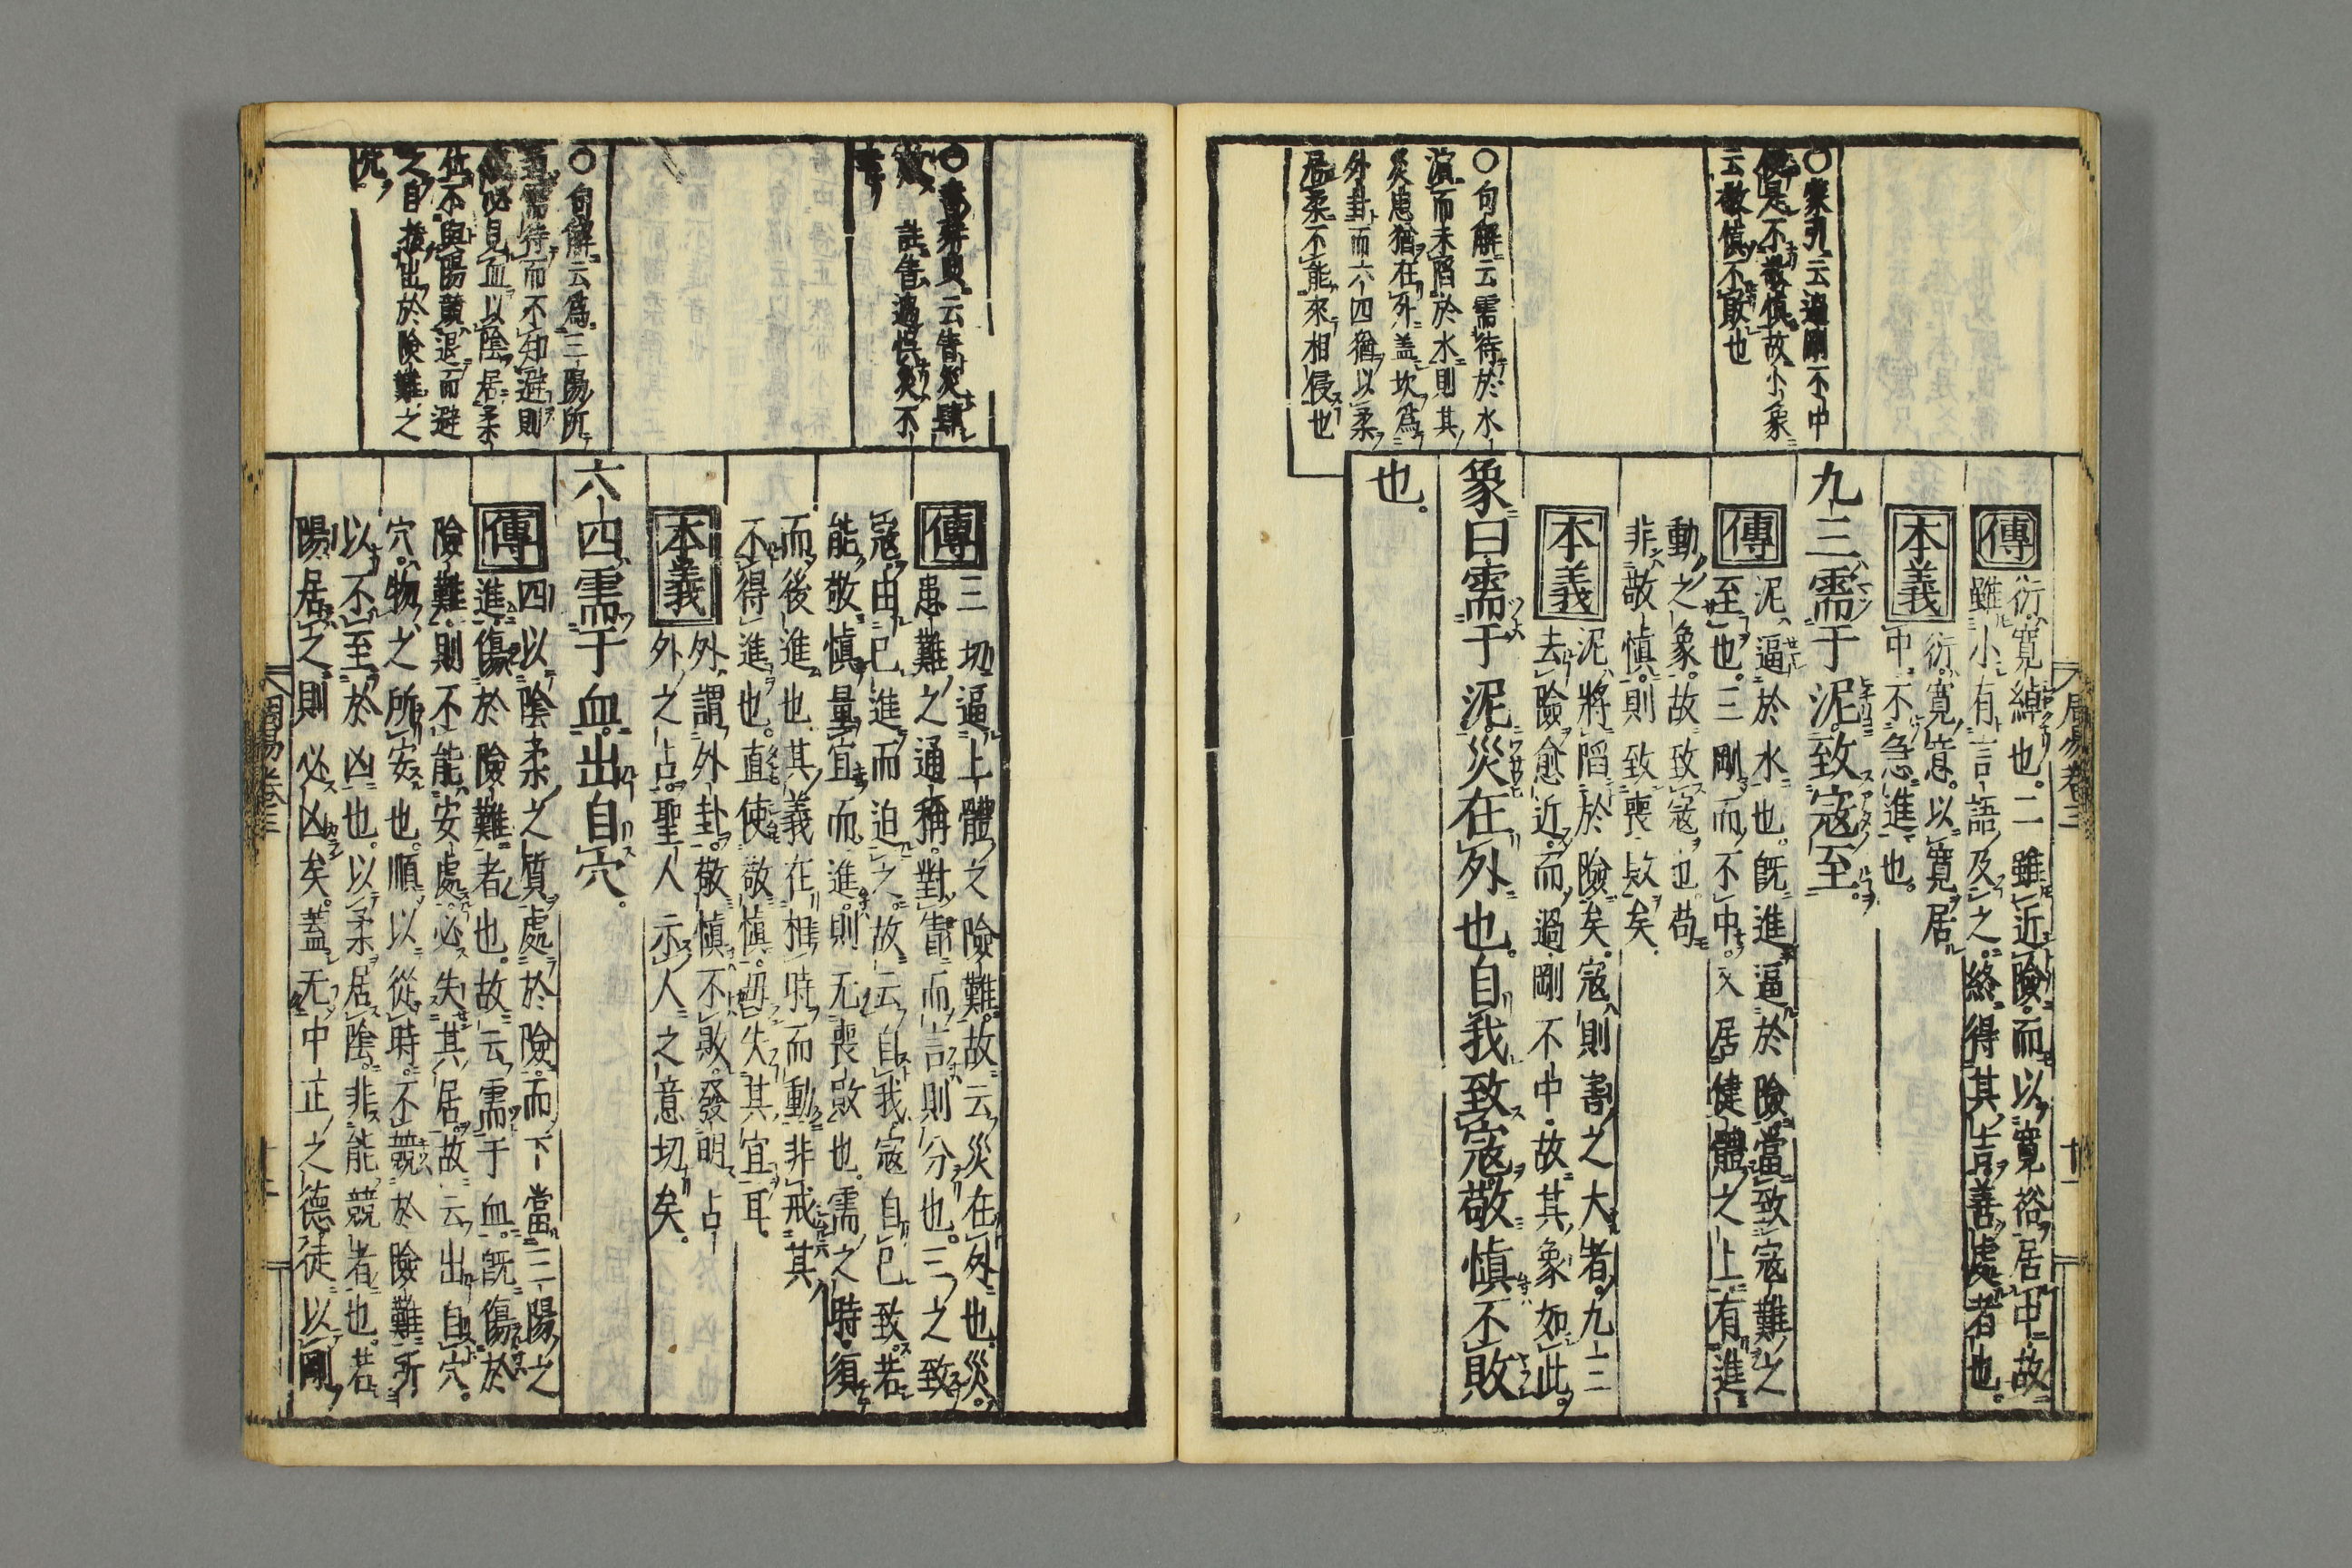 周易卷三
十一
傳
衍寛綽也。二雖近險。而以寛裕居中。故
雖小有言語及之。終得其吉。善處者也。
本義
衍。寛意。以寛居
中。不急進也。
九三需于泥。致寇至。
傳
泥逼於水也。既進逼於險。當致寇難之
至也。三剛而不中。又居健體之上。有進
動之象。故致寇也。苟
非敬慎。則致喪敗矣。
本義
泥將陷於險矣。寇則害之大者。九三
去險愈近。而過剛不中。故其象如此。
象曰需于泥。災在外也。自我致寇。敬慎不敗
也。
〇蒙引云過剛不中
便是不敬慎故小象
云敬慎不敗也
〇句解云需待於水
濵而未陷於水則其
災患猶在外盖坎爲
外卦而六四猶以柔
居柔不能來相侵也
傳
三切逼上體之險難。故云災在外也。災。
患難之通稱。對眚而言則分也。三之致
寇。由己進而迫之。故云自我。寇自己致。若
能敬慎。量宜而進。則无喪敗也。需之時。須
而後進也。其義在相時而動。非戒其
不得進也。直使敬慎。毋失其宜耳。
本義
外。謂外卦。敬慎不敗。發明占
外之占。聖人示人之意切矣。
六四需于血。出自穴。
傳
四以陰柔之質處於險。而下當三陽之
進。傷於險難者也。故云需于血。既傷於
險難。則不能安處。必失其居。故云出自穴。
穴。物之所安也。順以從時。不競於險難。所
以不至於凶也。以柔居陰。非能競者也。若
陽居之。則必凶矣。蓋无中正之德。徒以剛
云眚災肆
註眚過悞災不
〇句解云爲三陽所
需待而不知避則
必見血以陰居柔
不與陽競退而避
之自拔出於險難之
穴
周易卷三